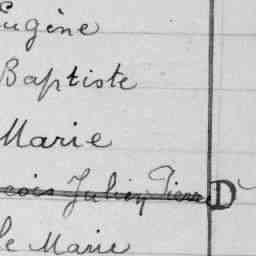 Eugène
Baptiste
Marie
çois Julien Pierre D
le Marie